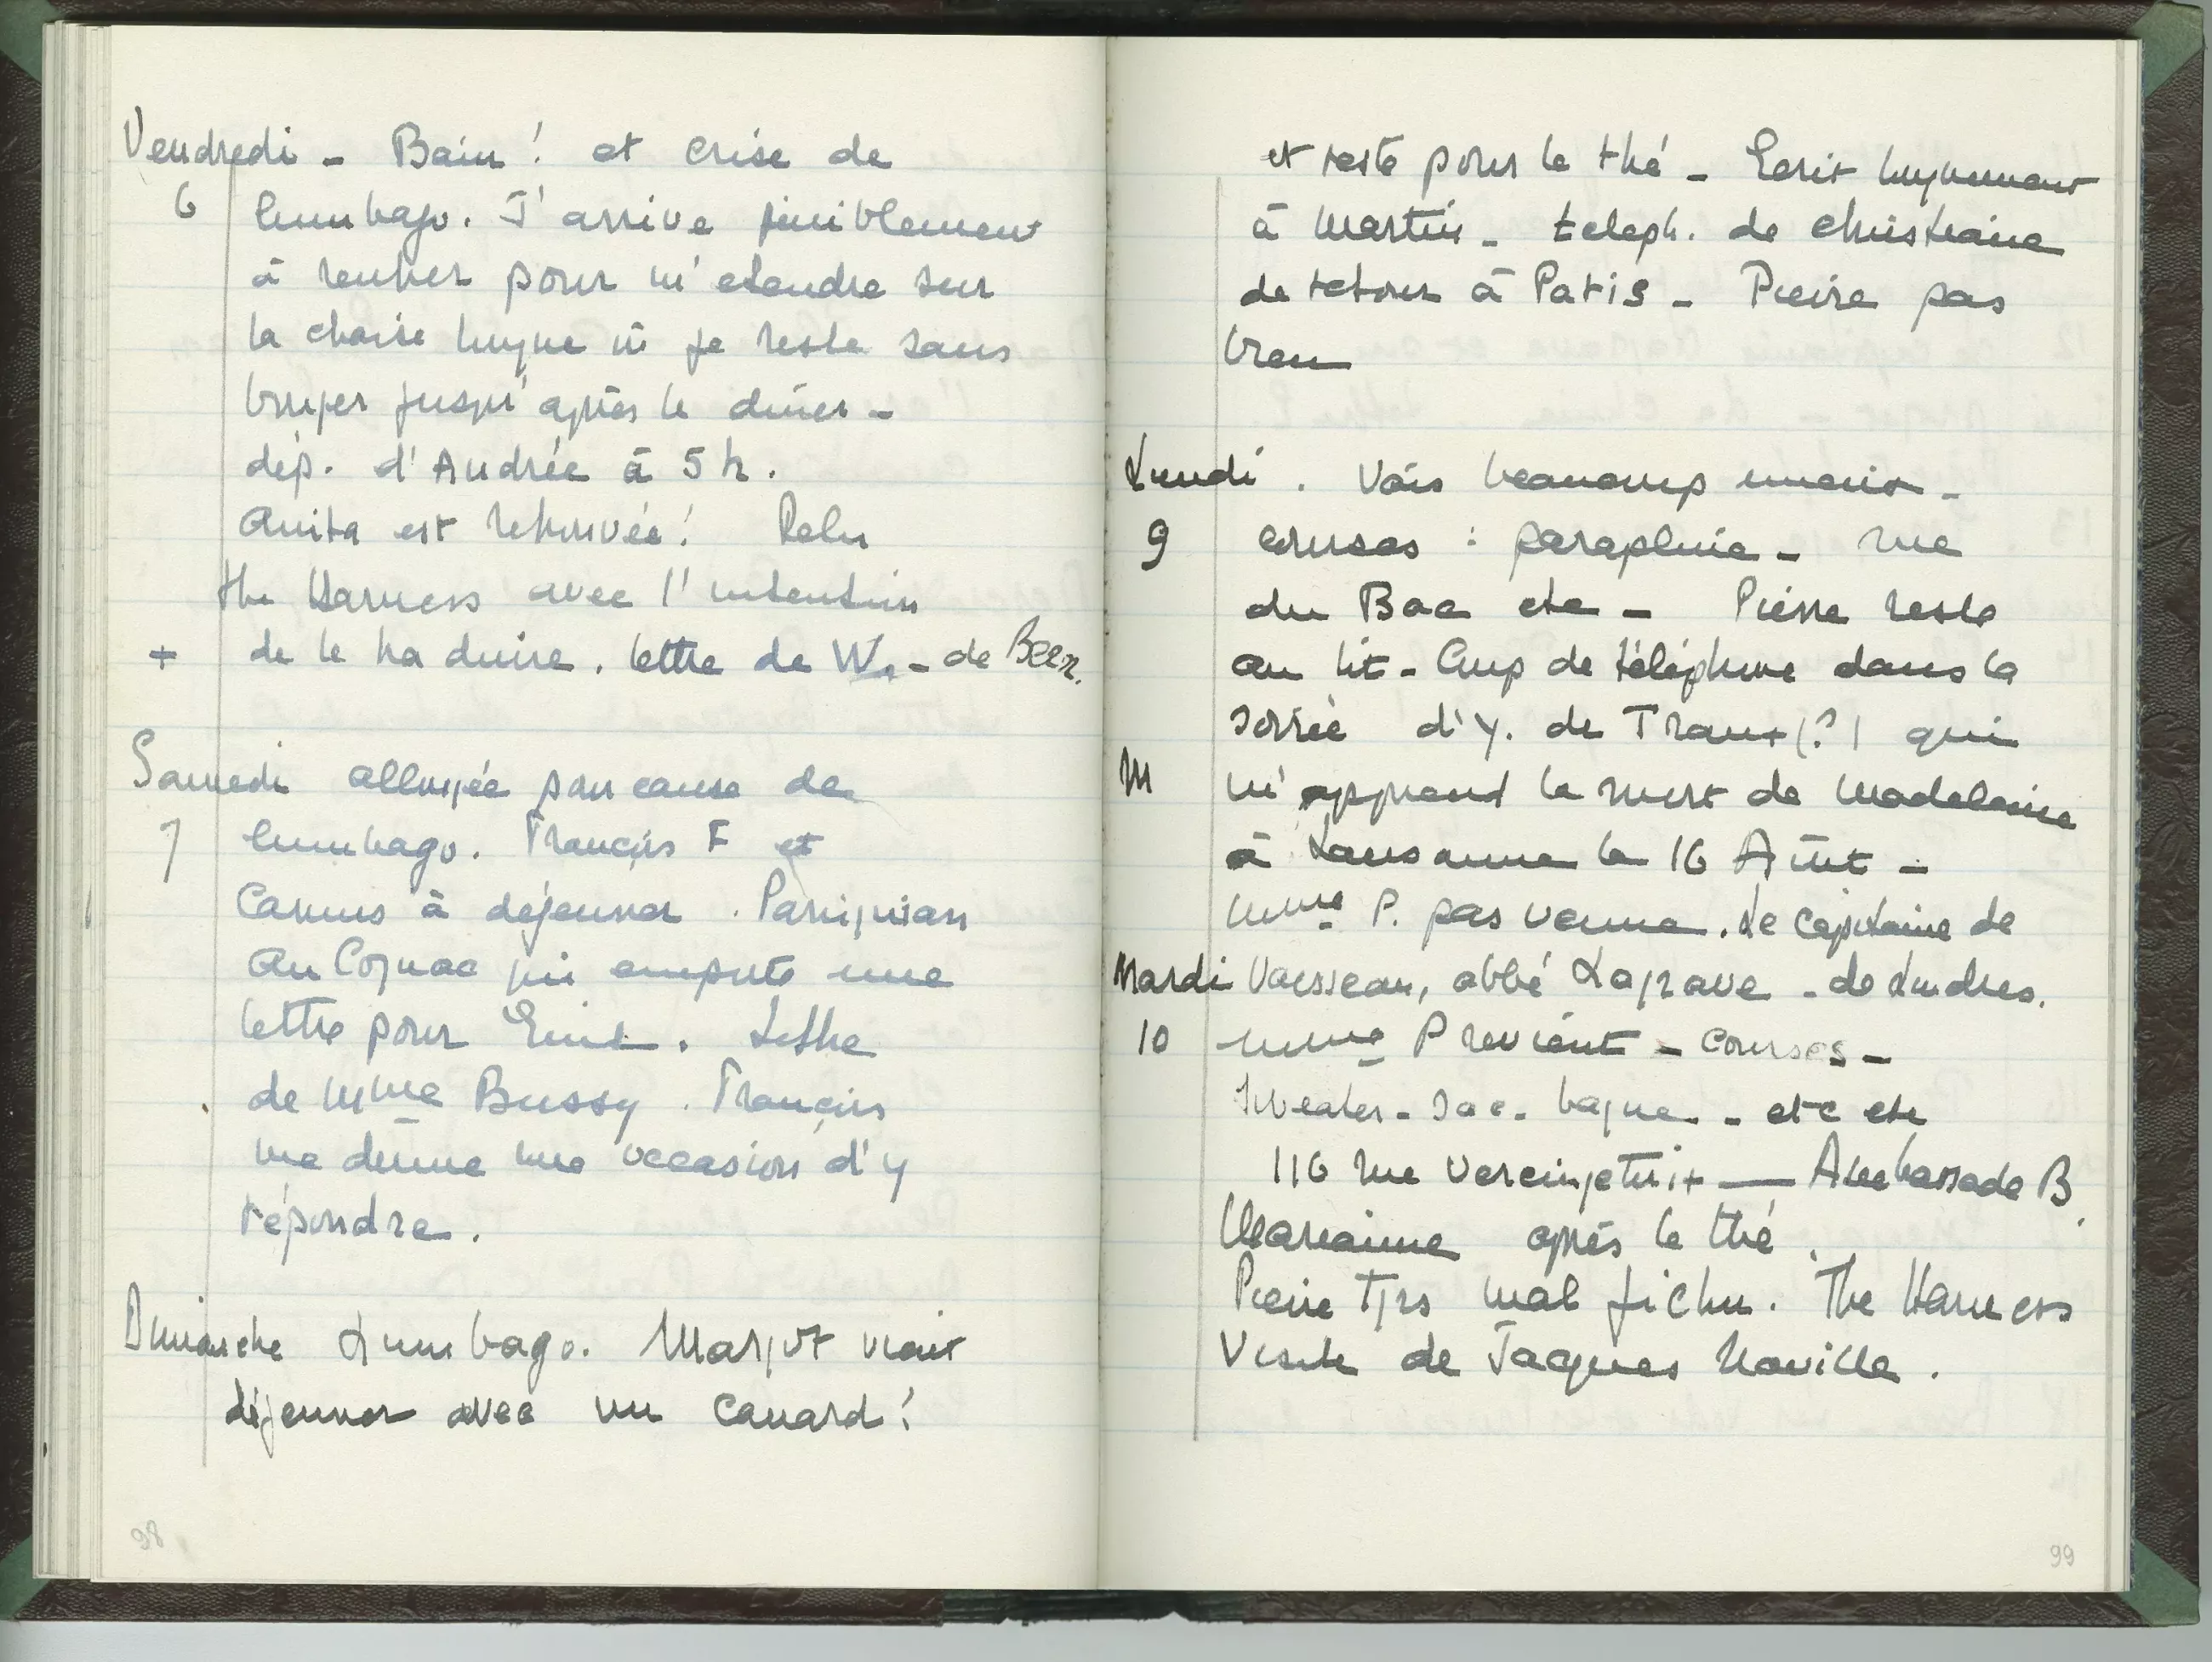 Vendredi - Bain ! et crise de
6 lumbago. J'arrive péniblement
à rentrer pour m'etendre sur
la chaise longue où je reste sans
bouger jusqu'après le dîner -
dép. d'Andrée à 5 h.
Anita est retrouvée ! Relu
the Harness avec l'intention
+ de le traduire. lettre de W. - de Beer.
Samedi allongée pour cause de
7 lumbago. François F et
Camus à déjeuner.
au Cognac qui emporte une
lettre pour . Lettre
de Mme Bussy. François
me donne une occasion d'y
répondre.
Dimanche Lumbago. Margot vient
déjeuner avec un canard !
98
et reste pour le thé - Ecrit longuement
à Martin - teleph. de Christiane
de retour à Paris - Pierre pas
bien
Lundi . Vais beaucoup mieux -
9 courses : parapluie - rue
du Bac etc - Pierre reste
au lit - Coup de téléphone dans la
soirée d'Y. de (?) qui
M m'apprend la mort de Madeleine
à Lausanne le 16 Août -
Mme P. pas venue. Le Capitaine de
Mardi Vaisseau, abbé Lagrave - de Londres.
10 Mme P revient - courses -
Sweater - sac - bague - etc etc
116 rue Vercingetorix — Ambassade B.
Marianne après le thé.
Pierre Tjrs mal fichu. The Harness
Visite de Jacques Naville.
99